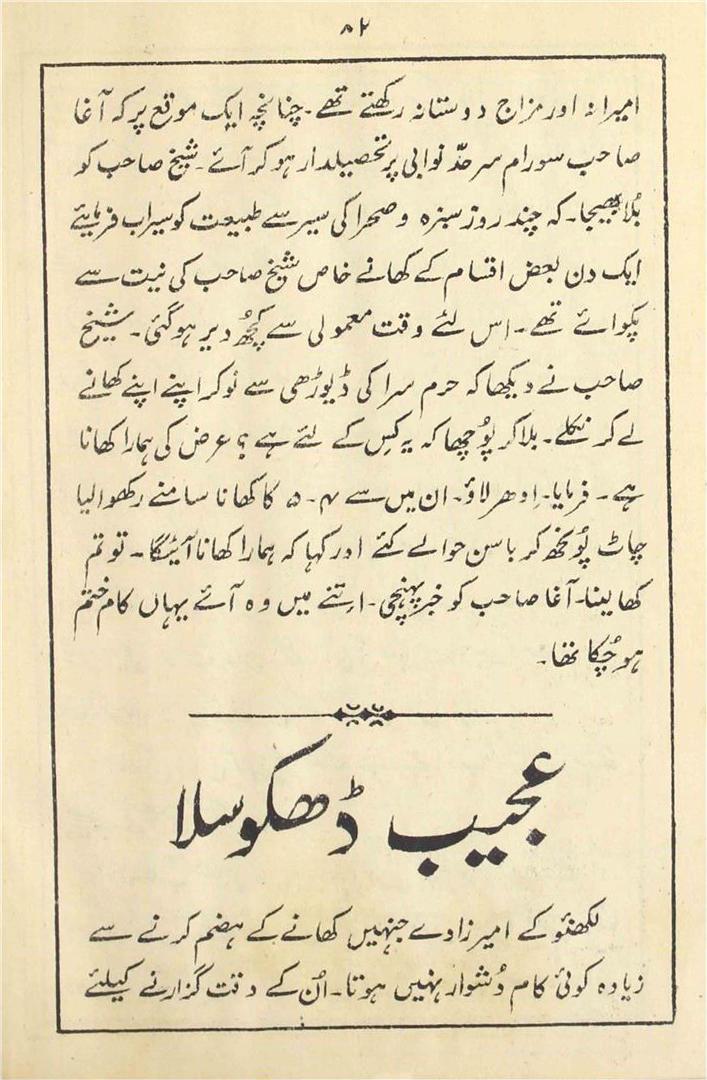 ۵۲
امیرانہ اور مزاج دوستانہ رکھتے تھے۔ چنانچہ ایک موقع پر کہ آغا
صاحب سورام سرحدّ نوابی پر تحصیلدار ہو کر آئے۔ شیخ صاحب کو
بُلا بھیجا۔ کہ چند روز سبزہ و صحرا کی سیر سے طبیعت کو سیراب فرمایئے
ایک دن بعض اقسام کے کھانے خاص شیخ صاحب کی نیت سے
پکوائے تھے۔ اس لئے وقت معمولی سے کچُھ دیر ہو گئی۔ شیخ
صاحب نے دیکھا کہ حرم سرا کی ڈیوڑھی سے نوکر اپنے اپنے کھانے
لے کر نکلے۔ بلا کر پوُچھا کہ یہ کس کے لئے ہے؟ عرض کی ہمارا کھانا
ہے۔ فرمایا۔ اِدھر لاؤ۔ ان میں سے ۴-۵ کا کھانا سامنے رکھوا لیا
چاٹ پُونچھ کر باسن حوالے کئے اور کہا کہ ہمارا کھانا آئیگا۔ تو تم
کھا لینا۔ آغا صاحب کو خبر پہنچی۔ اِتنے میں وہ آئے یہاں کام ختم
ہو چُکا تھا۔
عجیب ڈھکوسلا
لکھنئو کے امیرزادے جنہیں کھانے کے ہضم کرنے سے
زیادہ کوئی کام دُشوار نہیں ہوتا۔ اُن کے وقت گزارنے کیلئے